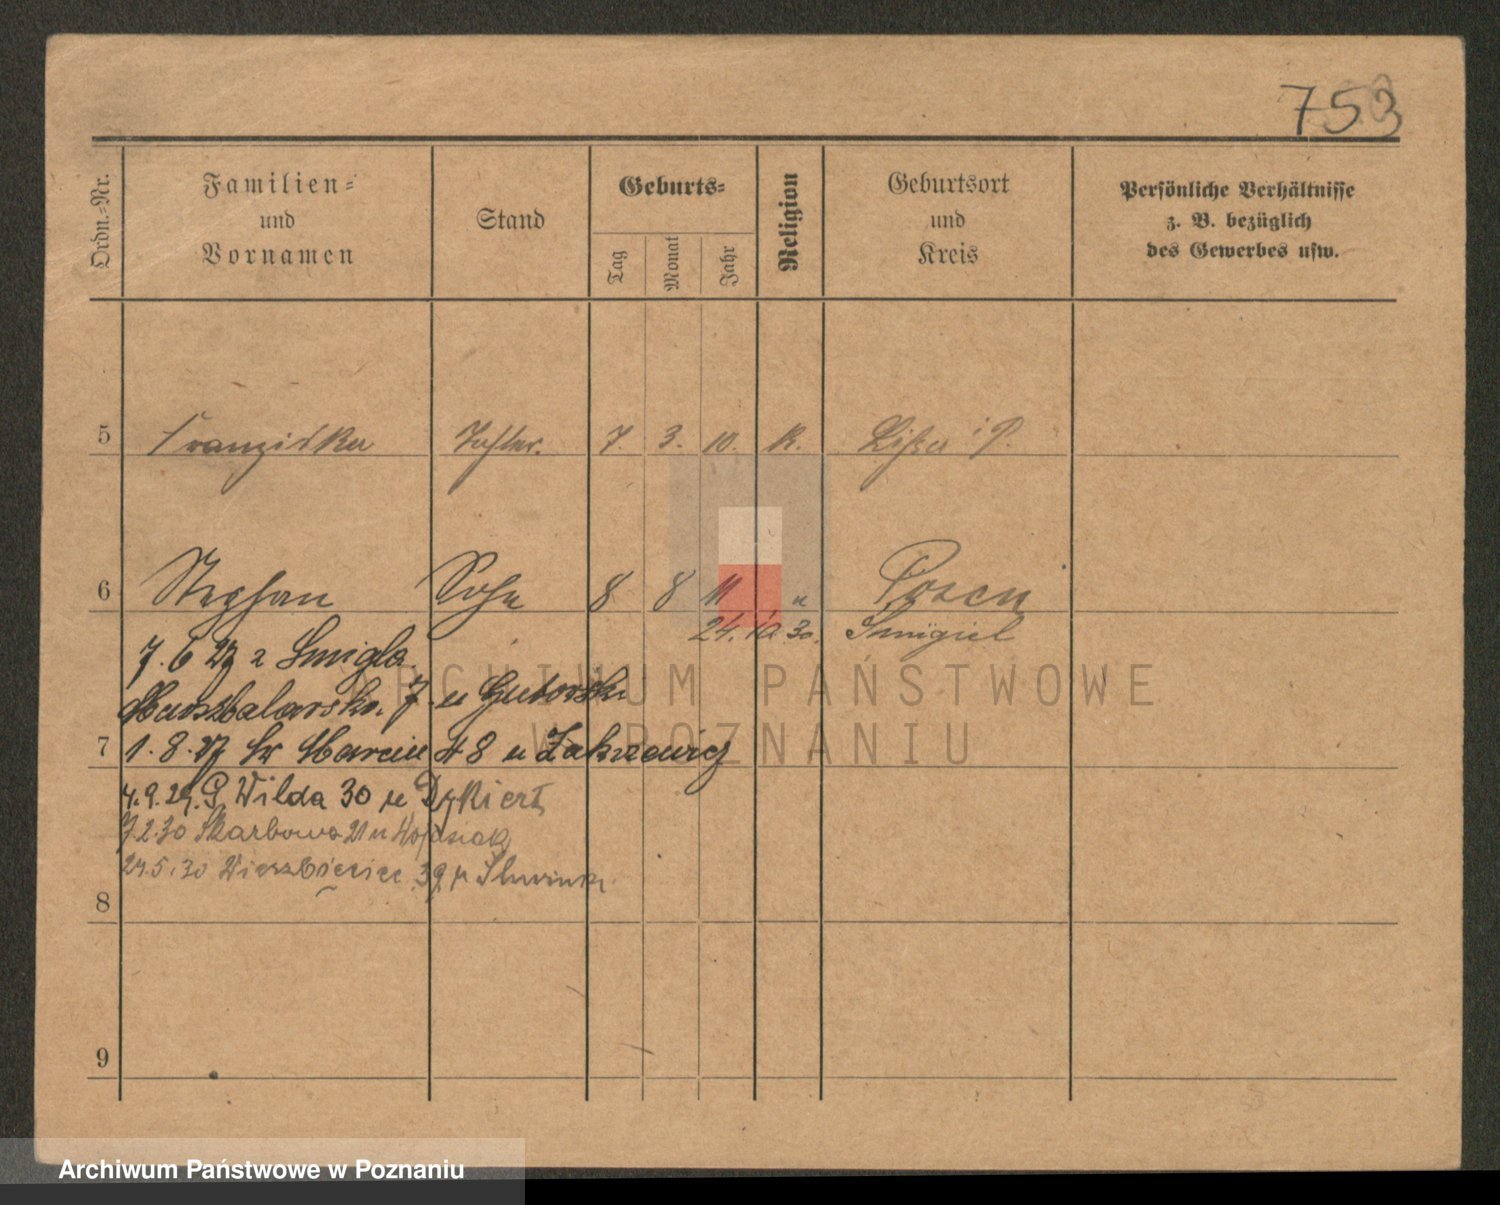 753
Ordn.=Nr.
Familien=
und
Vornamen
Stand
Geburts=
Tag
Monat
Jahr
Religion
Geburtsort
und
Kreis
Persönliche Verhältnisse
z. B. bezüglich
des Gewerbes usw.
5 Franziska Tochter. 7. 3. 10. K. Lissa i P.
6 Stephan Sohn 8 8 11 " Posen
24. 10 30. Smigiel
7. 6 27 z Smigla
Marszalarska 7 u Gutorski
7 1. 8. 27 Sw Marcin 48 u Zakrzewicz
4.9.29. G Wilda 30 u Dykiert
7 2 30 Skarbowa 21 u Wojasiak
24.5.30 Wierzbiecice 39 u
8
9
ARCHIWUM PAŃSTWOWE
W POZNANIU
Archiwum Państwowe w Poznaniu